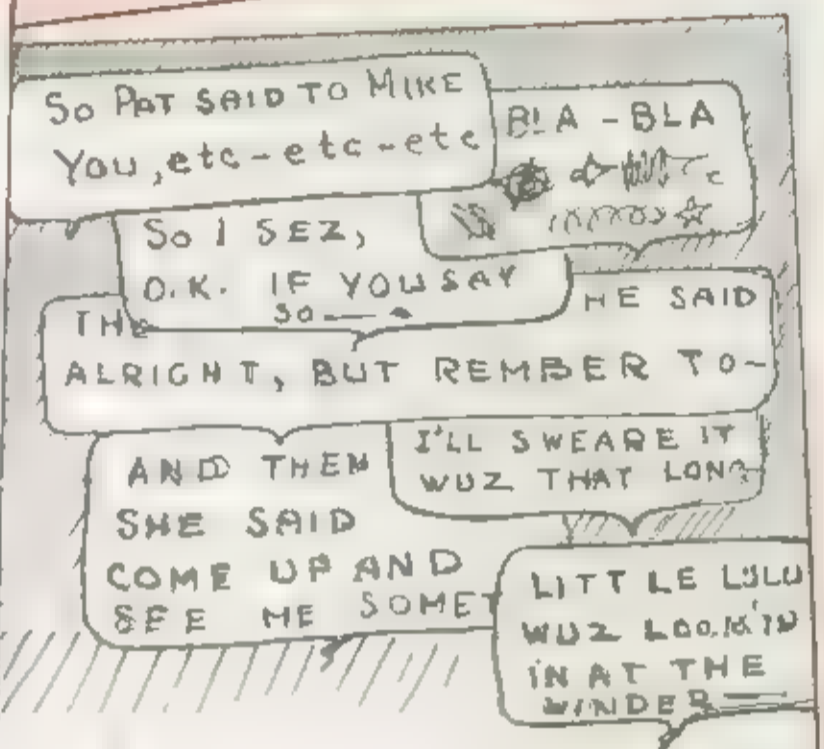 So PAT SAID TO MIKE
YOU, etc-etc-etc
BLA-BLA
So I SEZ,
O.K. IF YOU SAY
SO—
THE
HE SAID
ALRIGHT, BUT REMBER TO-
I'LL SWEARE IT
WUZ THAT LONG
AND THEN
SHE SAID
COME UP AND
SEE ME SOMET
LITTLE LULU
WUZ LOOK'IN
IN AT THE
WINDER